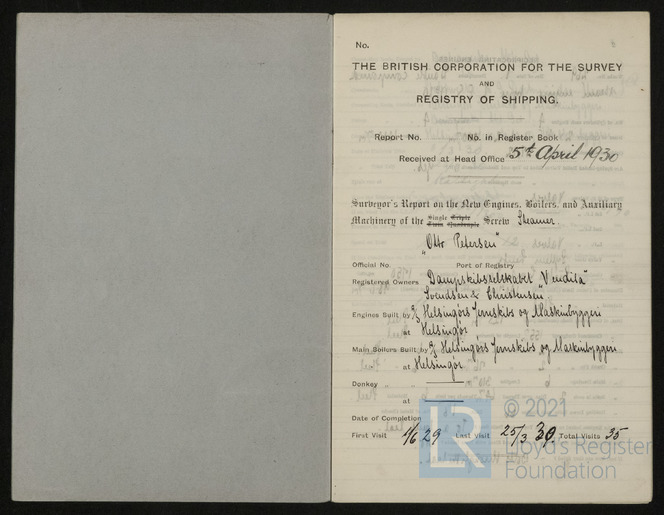 No.
THE BRITISH CORPORATION FOR THE SURVEY
AND
REGISTRY OF SHIPPING.
Report No. No. in Register Book
Received at Head Office 5th April 1930
Surveyor's Report on the New Engines, Boilers, and Auxiliary
Machinery of the Single Triple Twin Quadruple Screw Steamer.
"Otto Petersen"
Official No. Port of Registry
Registered Owners Dampskibsselskabet "Vendila"
Svendsen & Christensen
Engines Built by A/S Helsingörs Jernskibs og Maskinbyggeri
at Helsingör
Main Boilers Built by A/S Helsingörs Jernskibs og Maskinbyggeri
at Helsingör
Donkey " "
at
Date of Completion
First Visit 4/6 29 Last Visit 25/3 30. Total Visits 35
LR © 2021
Lloyd's Register
Foundation